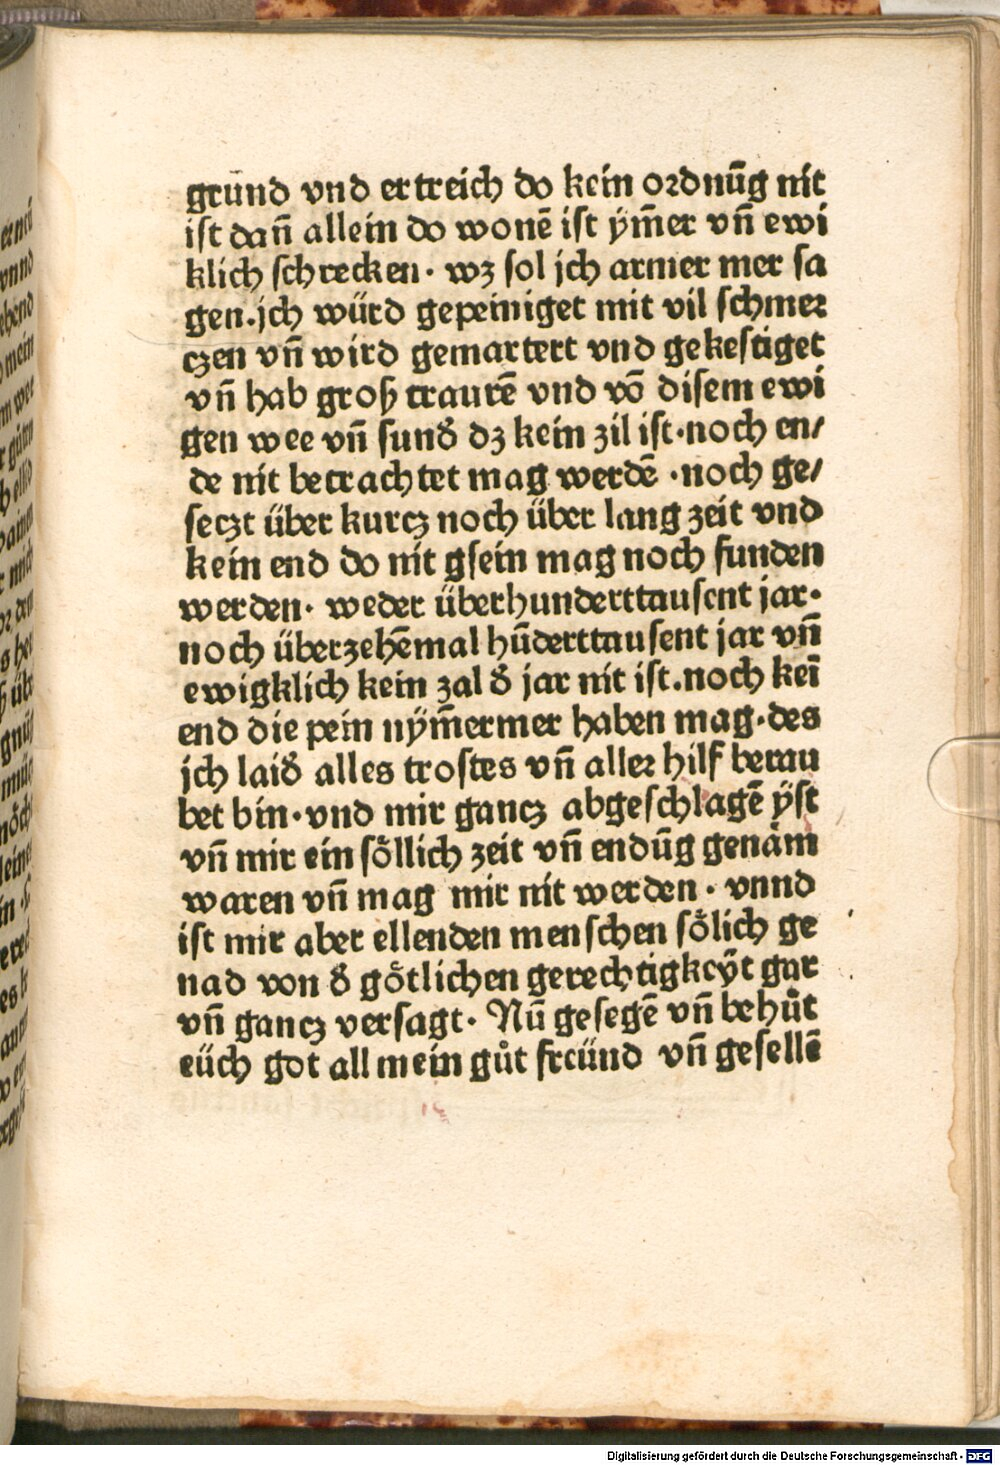 grund vnd ertreich do kein ordnūg nit
ist dañ allein do wonē ist ym̄er vñ ewi
klich schrecken· wz sol jch armer mer sa
gen.jch würd gepeiniget mit vil schmer
czen vñ wird gemartert vnd gekestiget
vñ hab groß traurē vnd vō disem ewi
gen wee vñ sunđ dz kein zil ist·noch en/
de nit betrachtet mag werdē ·noch ge/
seczt über kurcz noch über lang zeit vnd
kein end do nit gsein mag noch funden
werden· weder überhunderttausent jar·
noch überzehēmal hūderttausent jar vñ
ewigklich kein zal đ jar nit ist.noch keī
end die pein nym̄ermer haben mag·des
jch laiđ alles trostes vñ aller hilf berau
bet bin·vnd mir gancz abgeschlagē ÿst
vñ mir ein sŏllich zeit vñ endūg genäm
waren vñ mag mir nit werden· vnnd
ist mir aber ellenden menschen sŏlich ge
nad von đ gŏtlichen gerechtigkeÿt gar
vñ gancz versagt· Nū gesegē vñ behůt
eüch got all mein gůt freünd vñ gesellē
Digitalisierung gefördert durch die Deutsche Forschungsgemeinschaft · DFG